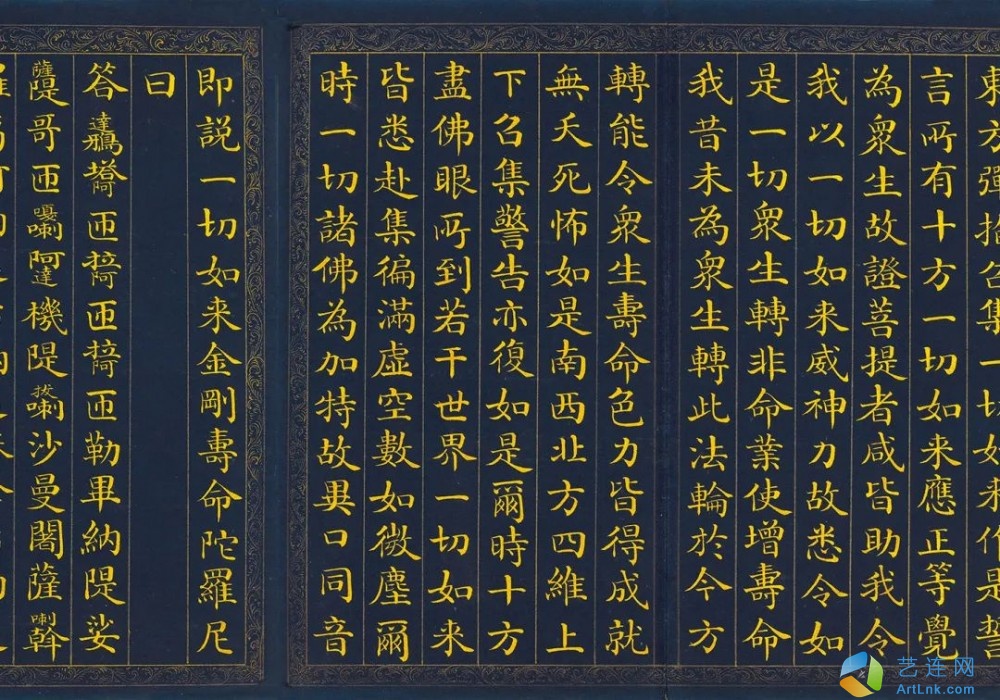 東方彈指召集一切如来作是誓
言所有十方一切如来應正等覺
為眾生故證菩提者咸皆助我令
我以一切如来威神力故悉令如
是一切眾生轉非命業使增壽命
我昔未為眾生轉此法輪於今方
轉能令眾生壽命色力皆得成就
無夭死怖如是南西北方四維上
下召集警告亦復如是爾時十方
盡佛眼所到若干世界一切如来
皆悉赴集徧滿虛空數如微塵爾
時一切諸佛為加特故異口同音
即說一切如来金剛壽命陀羅尼
曰
答達匝匝匝勒畢納隄娑
薩隄哥匝嘎喇阿達機隄拔喇沙曼闍薩喇斡
艺连网
ArtLnk.com